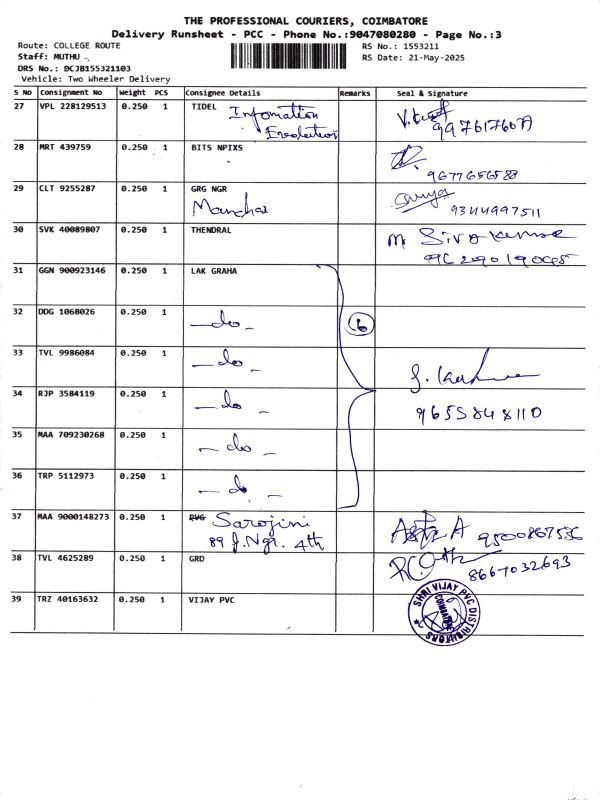 THE PROFESSIONAL COURIERS, COIMBATORE
Delivery Runsheet - PCC - Phone No.:9047080280 - Page No.:3
Route: COLLEGE ROUTE RS No.: 1553211
Staff: MUTHU RS Date: 21-May-2025
DRS No.: DCJB155321103
Vehicle: Two Wheeler Delivery
S No Consignment No Weight PCS Consignee Details Remarks Seal & Signature
27 VPL 228129513 0.250 1 TIDEL Infomation
28 MRT 439759 0.250 1 BITS NPIXS
9677656588
29 CLT 9255287 0.250 1 GRG NGR
9344997511
30 SVK 40089807 0.250 1 THENDRAL M Siva kumar
31 GGN 900923146 0.250 1 LAK GRAHA
32 DDG 1068026 0.250 1 -do- 6
33 TVL 9986084 0.250 1 -do-
34 RJP 3584119 0.250 1 -do- 9655848110
35 MAA 709230268 0.250 1 -do-
36 TRP 5112973 0.250 1 -do-
37 MAA 9000148273 0.250 1 PVG Sarojini
89 J.Ngr. 4th 9500867556
38 TVL 4625289 0.250 1 GRD 8667032693
39 TRZ 40163632 0.250 1 VIJAY PVC SHRI VIJAY PVC DISTRIBUTORS COIMBATORE